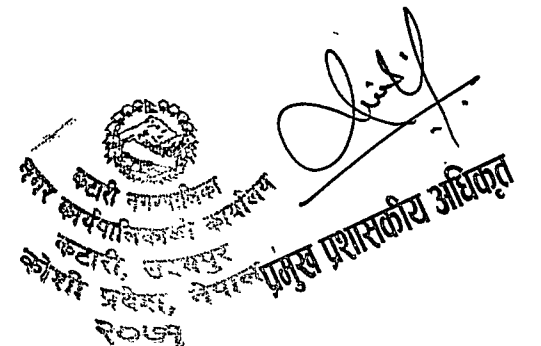 कटारी नगरपालिका
नगर कार्यपालिकाको कार्यालय
कटारी, उदयपुर
कोशी प्रदेश, नेपाल
२०७१
प्रमुख प्रशासकीय अधिकृत